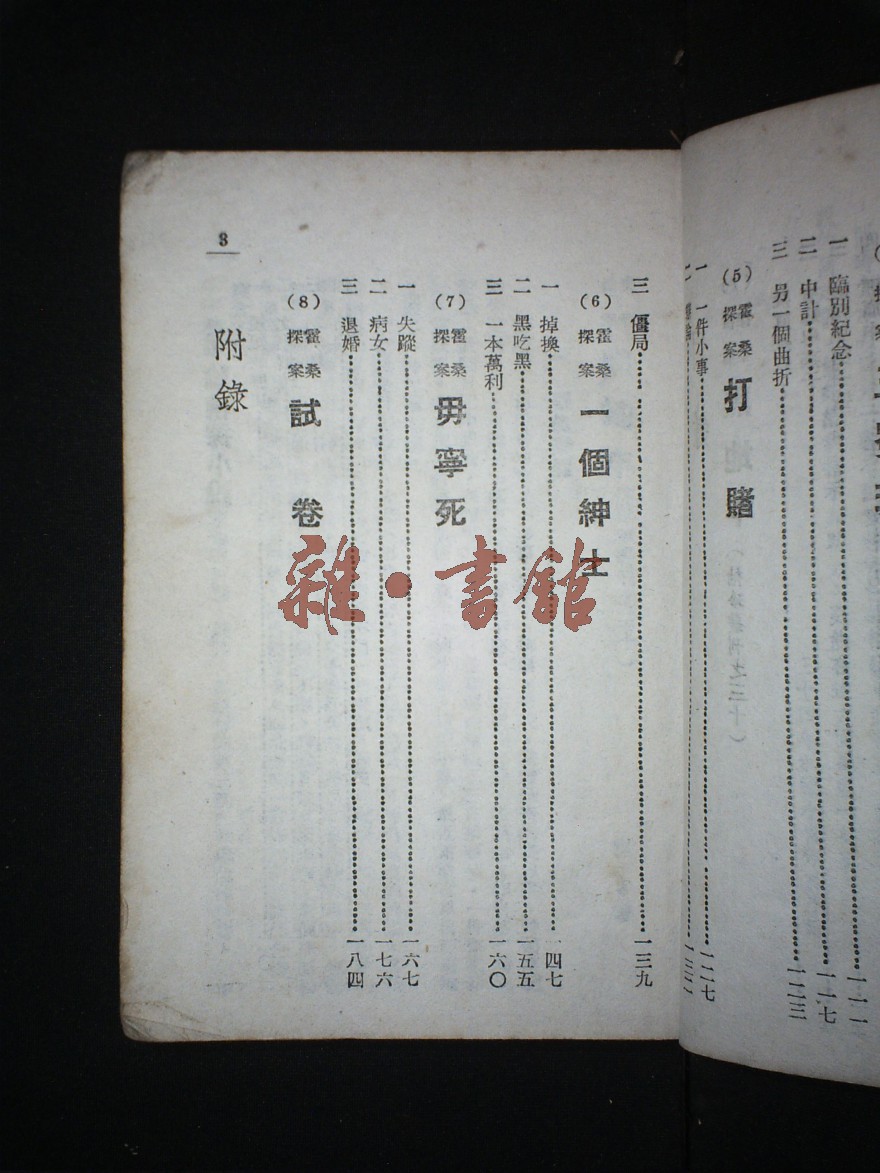 一 臨別紀念 一一一
二 中計 一一七
三 另一個曲折 一二三
(5) 霍桑探案 打賭
一 一件小事 一二七
三 僵局 一三九
(6) 霍桑探案 一個紳士
一 掉換 一四七
二 黑吃黑 一五五
三 一本萬利 一六〇
(7) 霍桑探案 毋寧死
一 失蹤 一六七
二 病女 一七六
三 退婚 一八四
(8) 霍桑探案 試卷
附錄
3
雜·書舘